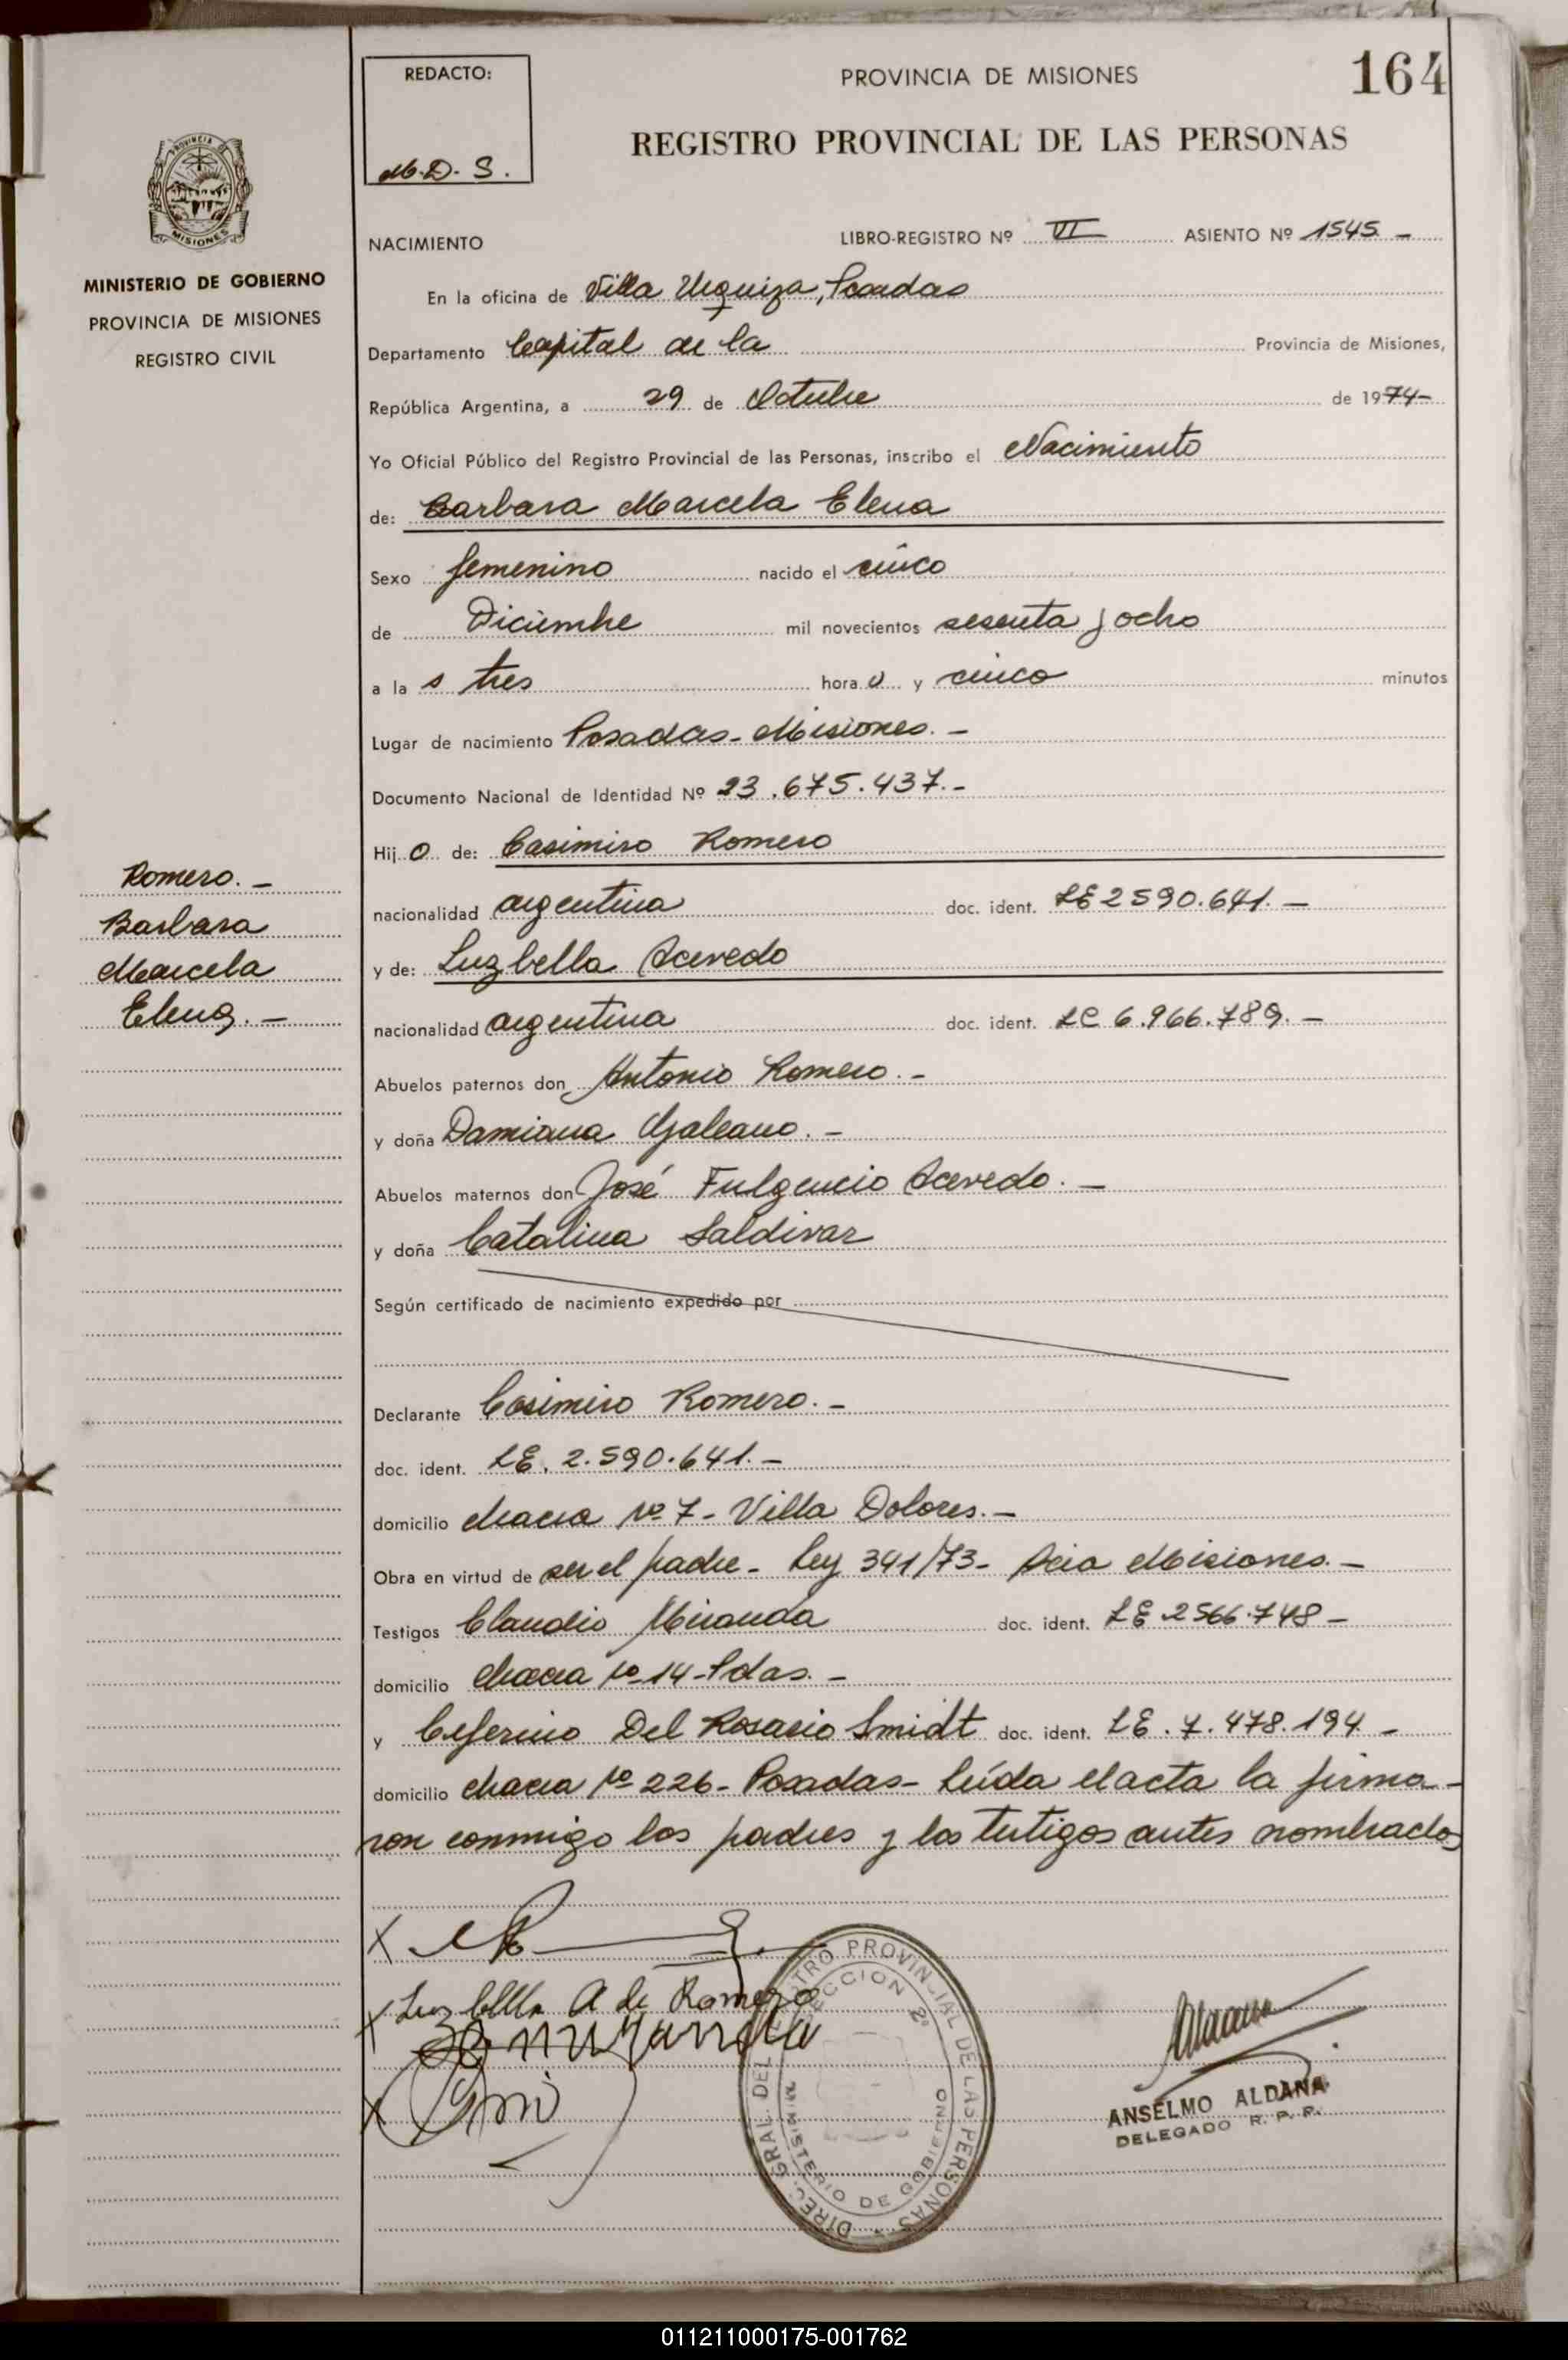 164
REDACTO:
M.D.S.
PROVINCIA DE MISIONES
REGISTRO PROVINCIAL DE LAS PERSONAS
PROVINCIA DE
MISIONES
MINISTERIO DE GOBIERNO
PROVINCIA DE MISIONES
REGISTRO CIVIL
NACIMIENTO LIBRO-REGISTRO Nº VI ASIENTO Nº 1545.-
En la oficina de Villa Urquiza, Posadas
Departamento Capital de la Provincia de Misiones,
República Argentina, a 29 de Octubre de 1974-
Yo Oficial Público del Registro Provincial de las Personas, inscribo el Nacimiento
de: Barbara Marcela Elena
Sexo femenino nacido el cinco
de Diciembre mil novecientos sesenta y ocho
a la s tres hora s y cinco minutos
Lugar de nacimiento Posadas - Misiones.-
Documento Nacional de Identidad Nº 23.675.437.-
Hij o de: Casimiro Romero
nacionalidad argentina doc. ident. LE 2590.641.-
y de: Luzbella Acevedo
nacionalidad argentina doc. ident. LC 6.966.789.-
Abuelos paternos don Antonio Romero.-
y doña Damiana Galeano.-
Abuelos maternos don José Fulgencio Acevedo.-
y doña Catalina Saldivar
Según certificado de nacimiento expedido por
Declarante Casimiro Romero.-
doc. ident. LE. 2.590.641.-
domicilio chacra Nº 7 - Villa Dolores.-
Obra en virtud de ser el padre - Ley 341/73 - Pcia Misiones.-
Testigos Claudio Miranda doc. ident. LE 2566.748-
domicilio chacra Nº 14 - Pdas.-
y Ceferino Del Rosario Smidt doc. ident. LE. 7.478.194.-
domicilio chacra Nº 226 - Posadas - Leída el acta la firma-
ron conmigo los padres y los testigos antes nombrados
Romero.-
Barbara
Marcela
Elena.-
X
X Luzbella A de Romero
miranda
X
DIREC. GRAL. DEL REGISTRO PROVINCIAL DE LAS PERSONAS
SECCION 2ª
MINISTERIO DE GOBIERNO
ANSELMO ALDANA
DELEGADO R. P. P.
011211000175-001762